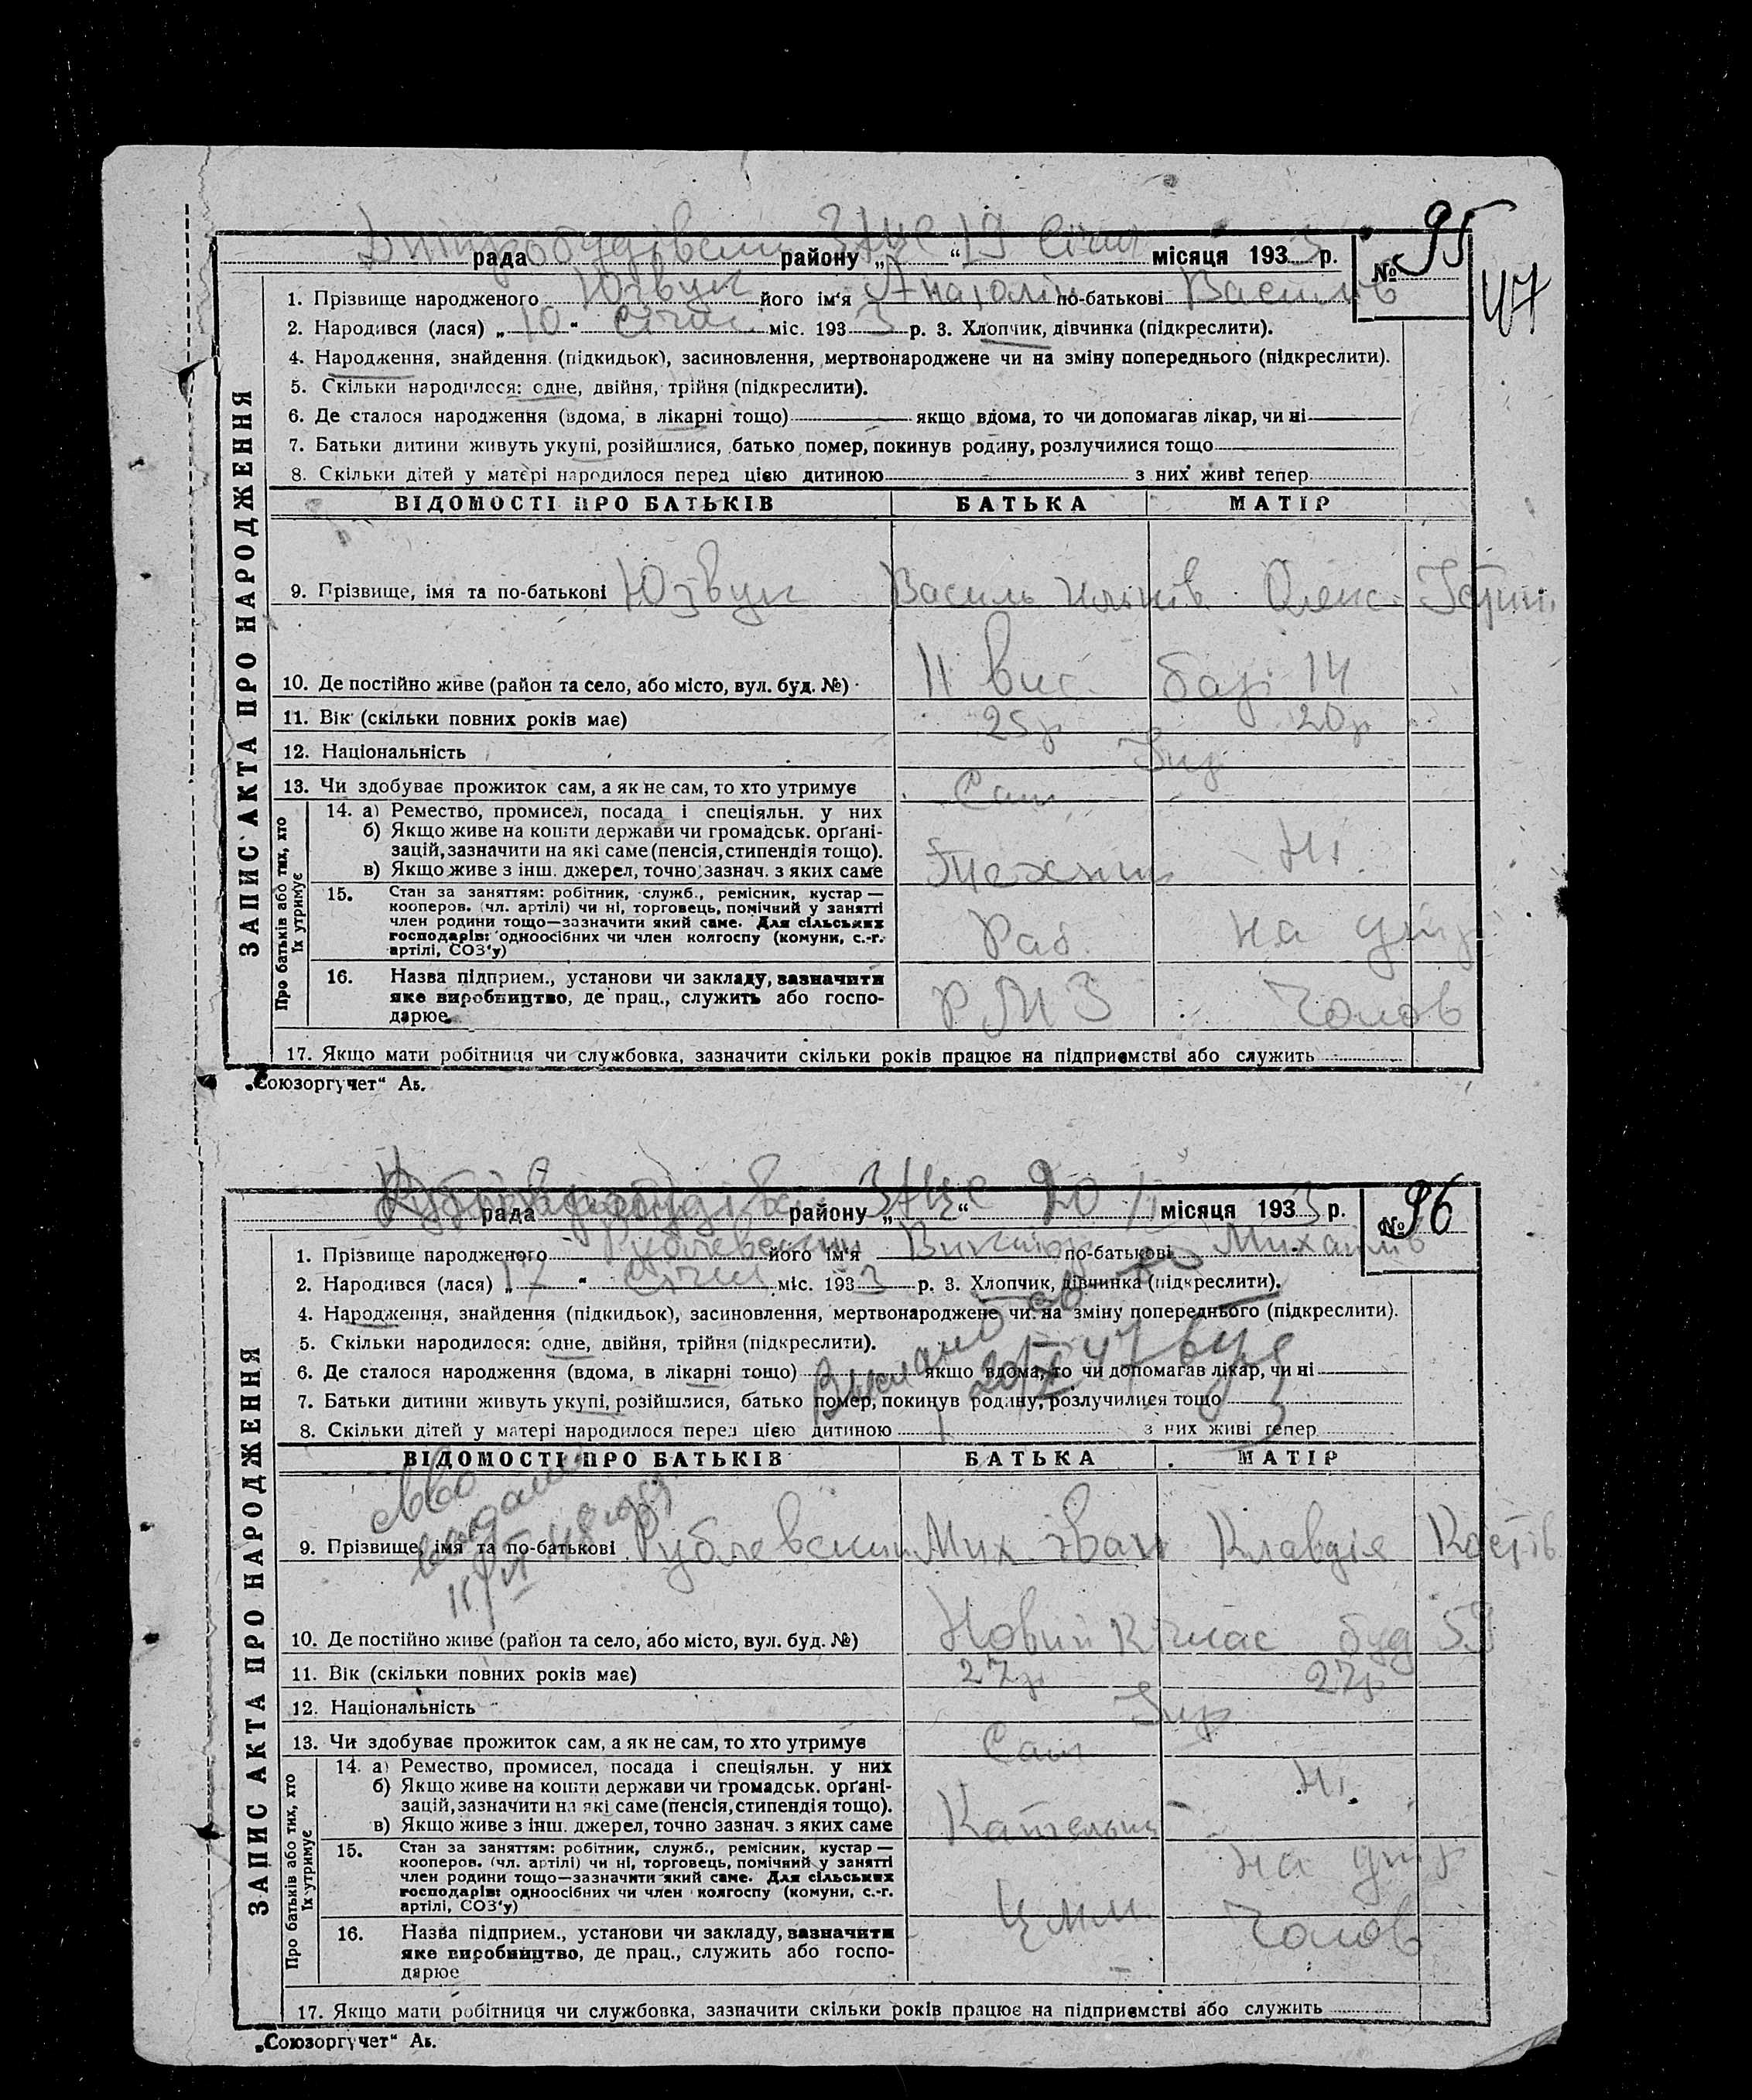 95
47
ЗАПИС АКТА ПРО НАРОДЖЕННЯ
рада ЗАЦС району „ “ 19 Січня місяця 1933 р. №
1. Прізвище народженого Юзвук його ім'я Анатолій по-батькові Василів
2. Народився (лася) „ 10 “ Січня міс. 1933 р. 3. Хлопчик, дівчинка (підкреслити).
4. Народження, знайдення (підкидьок), засиновлення, мертвонароджене чи на зміну попереднього (підкреслити).
5. Скільки народилося: одне, двійня, трійня (підкреслити).
6. Де сталося народження (вдома, в лікарні тощо) якщо вдома, то чи допомагав лікар, чи ні
7. Батьки дитини живуть укупі, розійшлися, батько помер, покинув родину, розлучилися тощо
8. Скільки дітей у матері народилося перед цією дитиною з них живі тепер
ВІДОМОСТІ ПРО БАТЬКІВ БАТЬКА МАТІР
9. Прізвище, імя та по-батькові Юзвук Василь Олекс.
10. Де постійно живе (район та село, або місто, вул. буд. №) 11 вис. 14
11. Вік (скільки повних років має) 25р 20р
12. Національність Укр
13. Чи здобуває прожиток сам, а як не сам, то хто утримує Сам
Про батьків або тих, хто їх утримує
14. а) Ремество, промисел, посада і спеціяльн. у них
б) Якщо живе на кошти держави чи громадськ. орґані-
зацій, зазначити на які саме (пенсія, стипендія тощо).
в) Якщо живе з інш. джерел, точно зазнач. з яких саме Ні
15. Стан за заняттям: робітник, служб., ремісник, кустар —
кооперов. (чл. артілі) чи ні, торговець, помічний у занятті
член родини тощо—зазначити який саме. Для сільських
господарів: одноосібних чи член колгоспу (комуни, с.-г.
артілі, СОЗ'у) Раб. на утр
16. Назва підприєм., установи чи закладу, зазначити
яке виробництво, де прац., служить або госпо-
дарює РМЗ Чолов
17. Якщо мати робітниця чи службовка, зазначити скільки років працює на підприємстві або служить
„Союзоргучет“ Аь.
96
ЗАПИС АКТА ПРО НАРОДЖЕННЯ
рада ЗАЦС району „ “ 20 місяця 1933 р. №
1. Прізвище народженого Рублевский його ім'я Виктор по-батькові Михайлів
2. Народився (лася) „ 17 “ Січня міс. 1933 р. 3. Хлопчик, дівчинка (підкреслити).
4. Народження, знайдення (підкидьок), засиновлення, мертвонароджене чи на зміну попереднього (підкреслити).
5. Скільки народилося: одне, двійня, трійня (підкреслити).
6. Де сталося народження (вдома, в лікарні тощо) якщо вдома, то чи допомагав лікар, чи ні
7. Батьки дитини живуть укупі, розійшлися, батько помер, покинув родину, розлучилися тощо
8. Скільки дітей у матері народилося перед цією дитиною 1 з них живі тепер
ВІДОМОСТІ ПРО БАТЬКІВ БАТЬКА МАТІР
9. Прізвище, імя та по-батькові Рублевский Мих. Іван Клавдія Костів
10. Де постійно живе (район та село, або місто, вул. буд. №) Новий Кічкас буд
11. Вік (скільки повних років має) 27р 27р
12. Національність Укр
13. Чи здобуває прожиток сам, а як не сам, то хто утримує Сам
Про батьків або тих, хто їх утримує
14. а) Ремество, промисел, посада і спеціяльн. у них
б) Якщо живе на кошти держави чи громадськ. орґані-
зацій, зазначити на які саме (пенсія, стипендія тощо).
в) Якщо живе з інш. джерел, точно зазнач. з яких саме Ні.
15. Стан за заняттям: робітник, служб., ремісник, кустар —
кооперов. (чл. артілі) чи ні, торговець, помічний у занятті
член родини тощо—зазначити який саме. Для сільських
господарів: одноосібних чи член колгоспу (комуни, с.-г.
артілі, СОЗ'у) на утр
16. Назва підприєм., установи чи закладу, зазначити
яке виробництво, де прац., служить або госпо-
дарює Чолов
17. Якщо мати робітниця чи службовка, зазначити скільки років працює на підприємстві або служить
„Союзоргучет“ Аь.